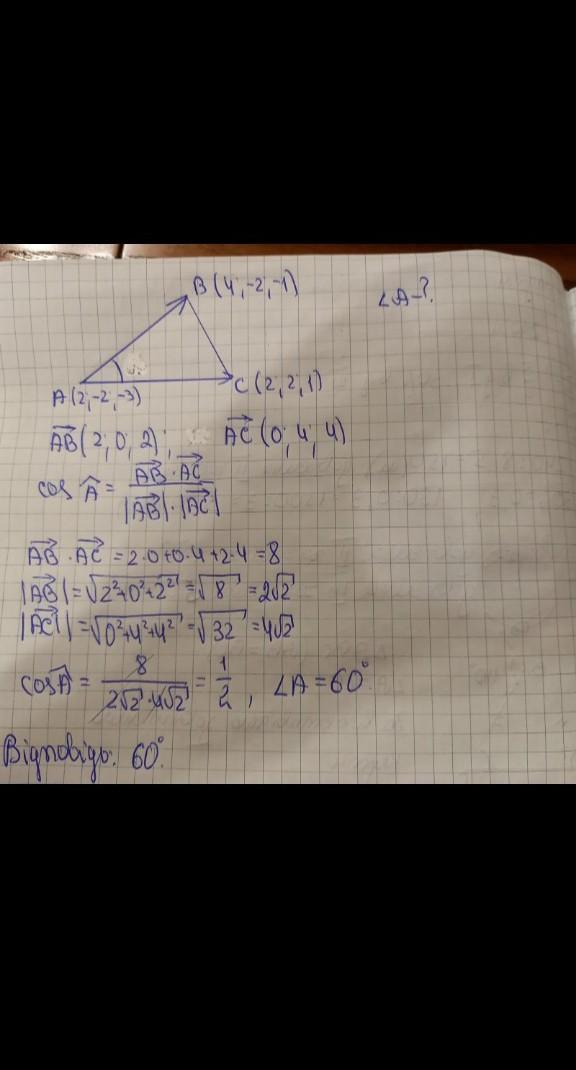 B(4;-2;-1)
∠A-?
A(2;-2;-3)
C(2;2;1)
AB⃗(2;0;2); AC⃗(0;4;4)
cos Â = (AB⃗·AC⃗)/(|AB⃗|·|AC⃗|)
AB⃗·AC⃗ = 2·0+0·4+2·4 = 8
|AB⃗| = √(2²+0²+2²) = √8 = 2√2
|AC⃗| = √(0²+4²+4²) = √32 = 4√2
cosÂ = 8/(2√2·4√2) = 1/2, ∠A = 60°
Відповідь: 60°.